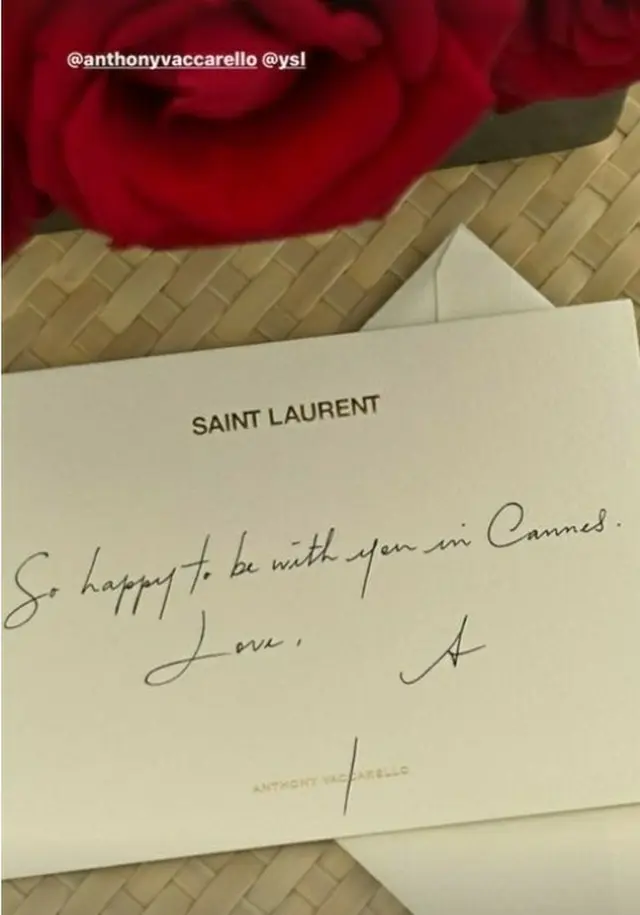 @anthonyvaccarello @ysl
SAINT LAURENT
So happy to be with you in Cannes.
Love, A
ANTHONY VACCARELLO